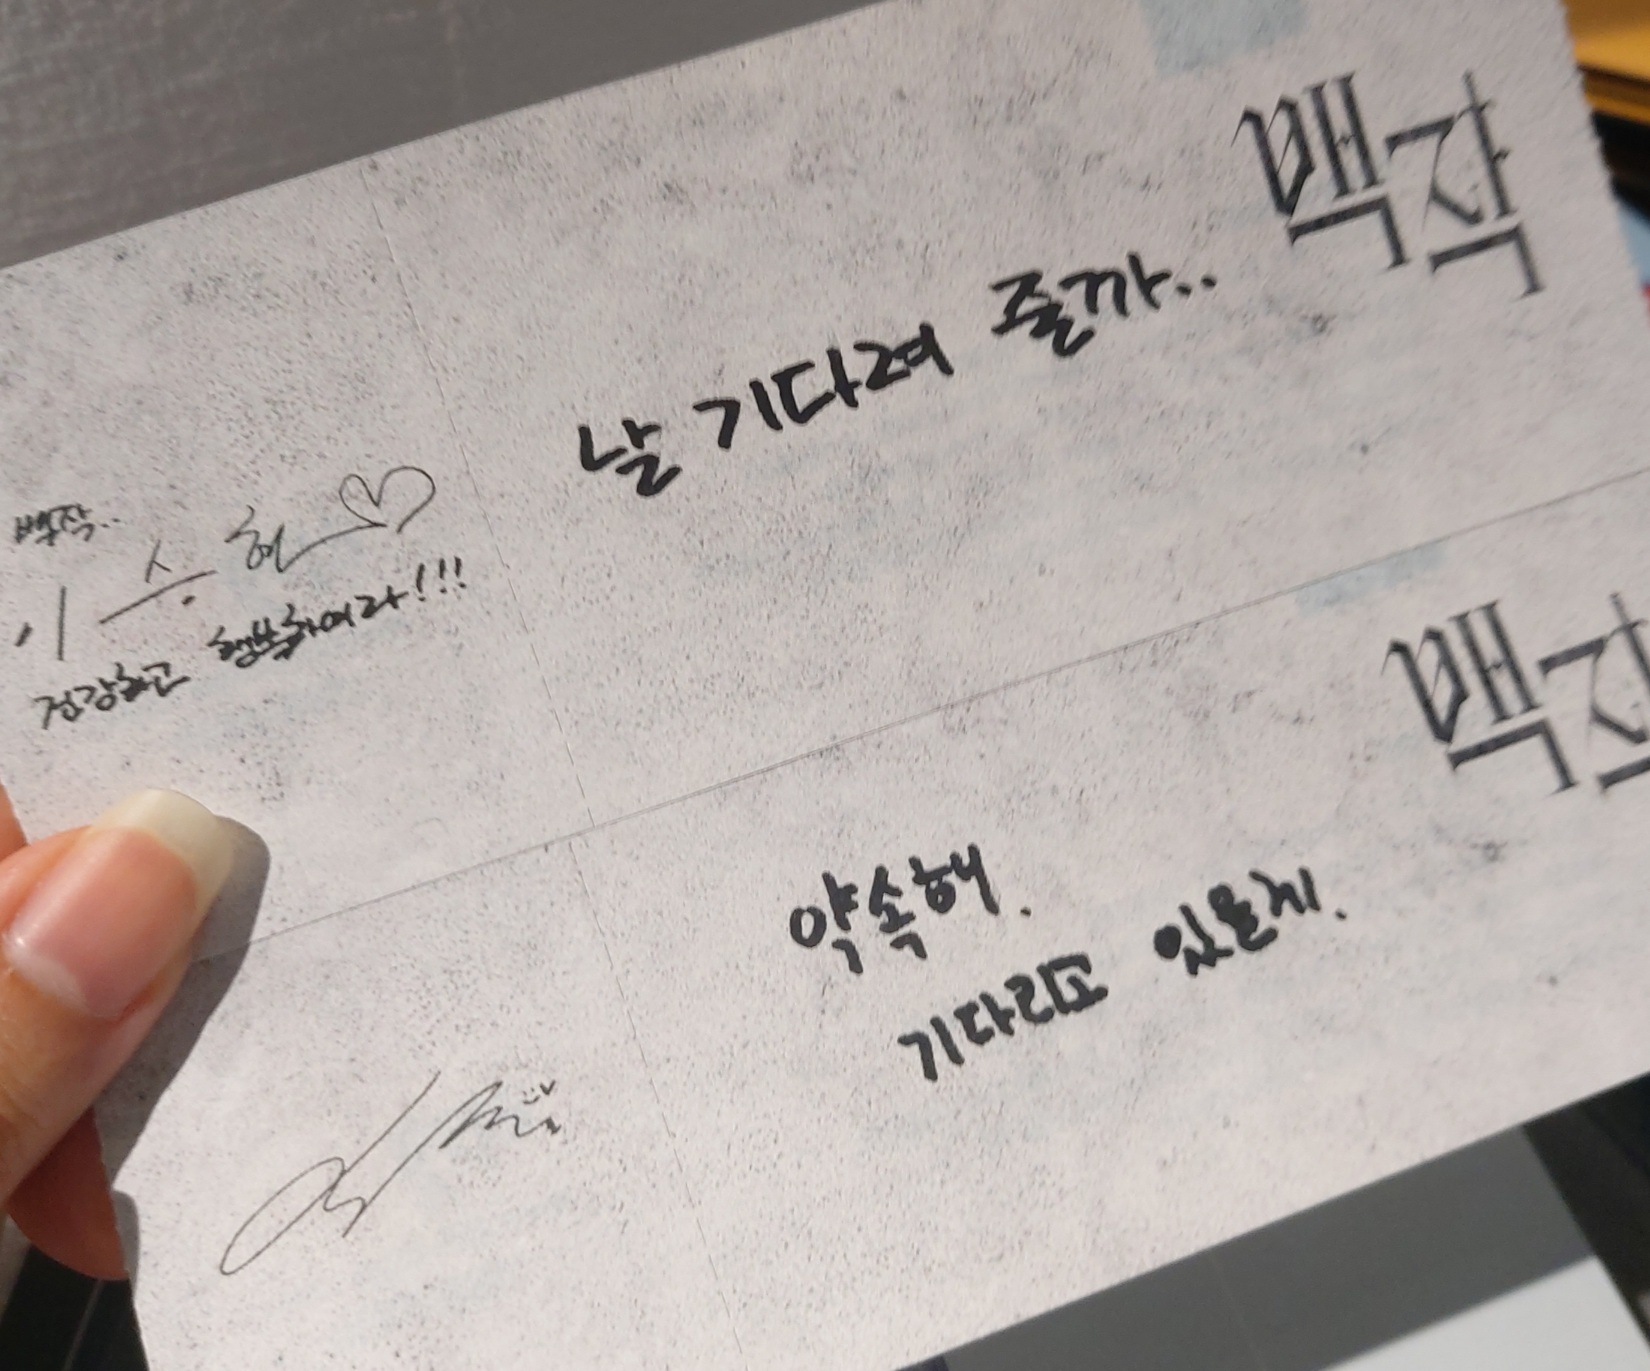 백작
날 기다려 줄까..
백작..
이승현♡
건강하고 행복하여라!!!
백작
약속해.
기다리고 있을게.